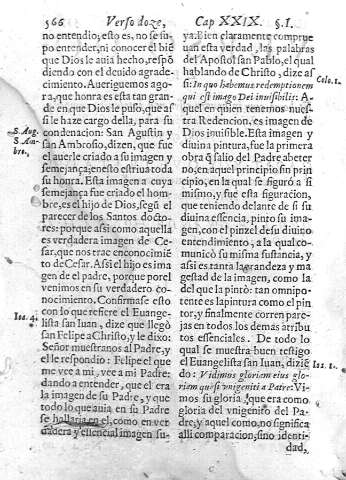 566 Verso doze, Cap XXIX. §. I.
no entendio; esto es, no se su-
po entender, ni conocer el biē
que Dios le auia hecho, respō
diendo con el deuido agrade-
cimiento. Aueriguemos ago-
ra, que honra es esta tan gran-
de en que Dios le puso, que as
si le haze cargo della, para su
condenacion: San Agustin y
san Ambrosio, dizen, que fue
el auerle criado a su imagen y
semejança; en esto estriua toda
su honra. Esta imagen a cuya
semejança fue criado el hom-
bre, es el hijo de Dios, segū el
parecer de los Santos docto-
res: porque assi como aquella
es verdadera imagen de Ce-
sar, que nos trae en conocimiē
to de Cesar. Assi el hijo es ima
gen de el padre, porque por el
venimos en su verdadero co-
nocimiento. Confirmase esto
con lo que refiere el Euange-
lista san Iuan, dize que llegò
san Felipe a Christo, y le dixo:
Señor muestranos al Padre, y
el le respondio: Felipe el que
me vee a mi, vee a mi Padre:
dando a entender, que el era
la imagen de su Padre, y que
todo lo que auia en su Padre
se hallaria en el, como en ver
dadera y essencial imagen su-
S. Aug.
S. Am-
bro.
Ioa. 4.
ya. Bien claramente comprue
uan esta verdad, las palabras
del Apostol san Pablo, el qual
hablando de Christo, dize as
si: In quo habemus redemptionem
qui est imago Dei inuisibilis: A-
quel en quien tenemos nuestra
Redencion, es imagen de
Dios inuisible. Esta imagen y
diuina pintura, fue la primera
obra q̄ salio del Padre abeter
no, en aquel principio sin prin
cipio, en la qual se figurò a si
mismo, y fue esta figuracion,
que teniendo delante de si su
diuina essencia, pinto su ima-
gen, con el pinzel de su diuino
entendimiento, a la qual comu-
nicò su misma sustancia, y
assi es tanta la grandeza y ma
gestad de la imagen, como la
del que la pintò: tan omnipo-
tente es la pintura como el pin
tor, y finalmente corren pare-
jas en todos los demas atribu
tos essenciales. De todo lo
qual se muestra buen testigo
el Euangelista san Iuan, diziē
do: Vidimus gloriam eius glo-
riam quasi vnigeniti a Patre: Vi-
mos su gloria, que era como
gloria del vnigenito del Pa-
dre, y aquel como, no significa
alli comparacion, sino identi-
dad,
Colo. 1.
Ioa. 1.